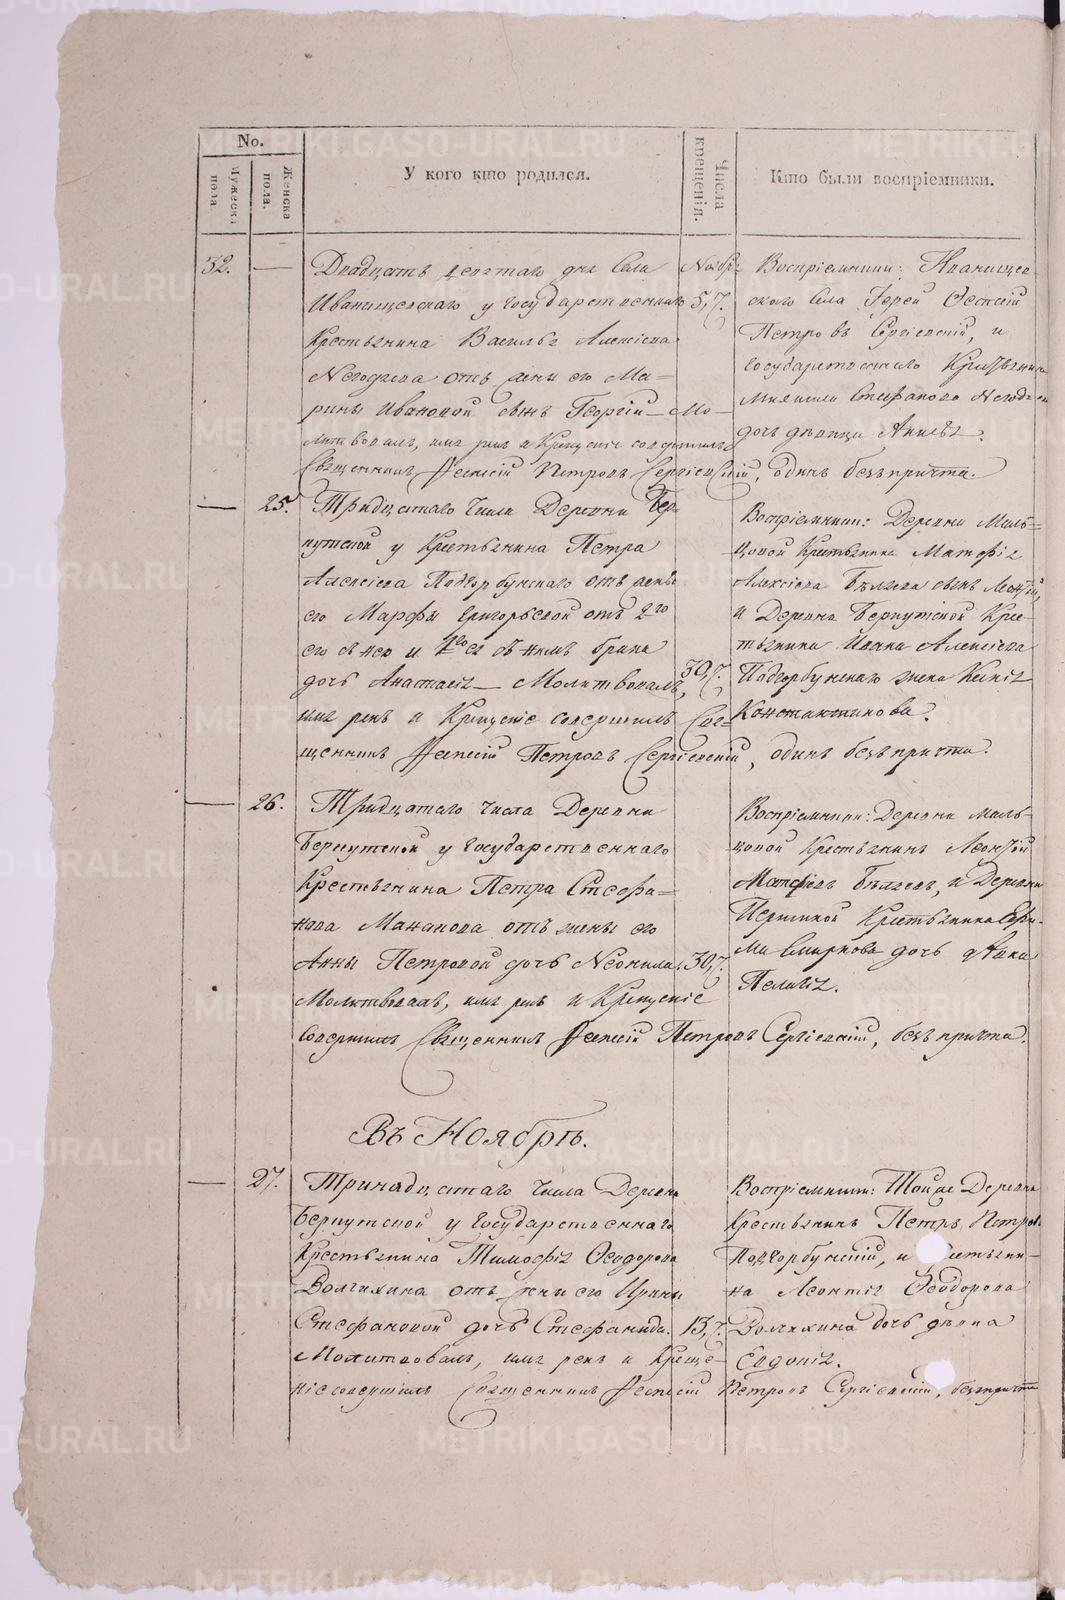 No.
Мужеска пола.
Женска пола.
У кого кто родился.
Числа крещенія.
Кто были воспріемники.
32.
Двадцать девятаго дня Села
Иванищевскаго у Государственнаго
Крестьянина Василья Алексіева
отъ жены его Ма-
рины Ивановой сынъ Георгій Мо-
литвовалъ, имя рекъ и Крещеніе совершилъ
Священникъ Алексій Петровъ Сергіевскій, одинъ безъ причта.
Ноября
5,7.
Воспріемники: Иванищев-
скаго Села Іерей Алексій
Петровъ Сергіевскій, и
Государственнаго Крестьянина
Стефанова
дочь дѣвица
25.
Тридцатаго Числа Деревни Бер-
нутской у Крестьянина Петра
Алексіева Подгорбунскаго отъ жены
его Марфы Григорьевой отъ 2го
его съ нею и 1го ея съ нимъ брака
дочь Анастасія Молитвовалъ,
имя рекъ и Крещеніе совершилъ Свя-
щенникъ Алексій Петровъ Сергіевскій, одинъ безъ причта.
30,7.
Воспріемники: Деревни Маль-
цовой Крестьянина Матфія
Алексіева Бѣляева сынъ Леонтій,
и Деревни Бернутской Кре-
стьянина Ивана Алексіева
Подгорбунскаго жена Ксенія
Константинова.
26.
Тридцатаго Числа Деревни
Бернутской у Государственнаго
Крестьянина Петра Стефа-
нова Маханова отъ жены его
Анны Петровой дочь Неонила
Молитвовалъ, имя рекъ и Крещеніе
совершилъ Священникъ Алексій Петровъ Сергіевскій, безъ причта.
30,7.
Воспріемники: Деревни Маль-
цовой Крестьянинъ Леонтій
Матфіевъ Бѣляевъ, и Деревни
Крестьянина Ефи-
ма Смирнова дочь дѣвка
Пелагія.
Въ Ноябрѣ.
27.
Тринадцатаго Числа Деревни
Бернутской у Государственнаго
Крестьянина Тимофія Ѳеодорова
Волгихина отъ жены его Ирины
Стефановой дочь Стефанида.
Молитвовалъ, имя рекъ и Креще-
ніе совершилъ Священникъ Алексій Петровъ Сергіевскій, безъ причта
13,7.
Воспріемники: Тойже Деревни
Крестьянинъ Петръ Петровъ
Подгорбунскій, и Крестьяни-
на Леонтія Ѳеодорова
Волгихина дочь дѣвка
Евдокія.
METRIKI.GASO-URAL.RU